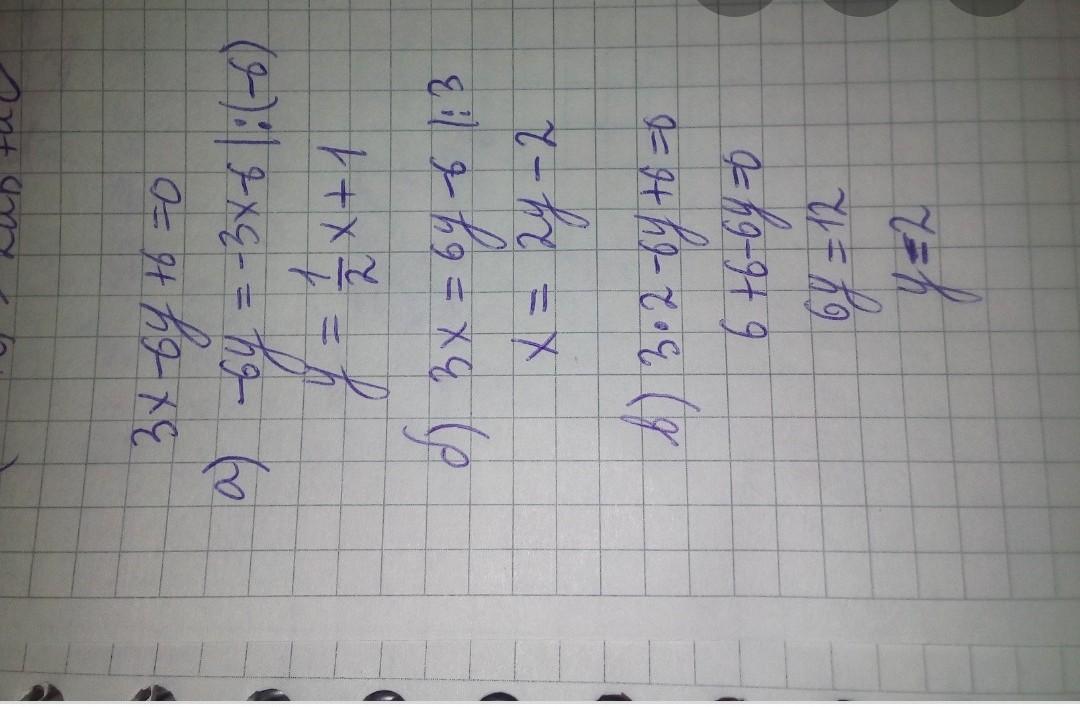 3x - 6y + 6 = 0
а) -6y = -3x - 6 |:(-6)
y = 1/2 x + 1
б) 3x = 6y - 6 |:3
x = 2y - 2
в) 3•2 - 6y + 6 = 0
6 + 6 - 6y = 0
6y = 12
y = 2